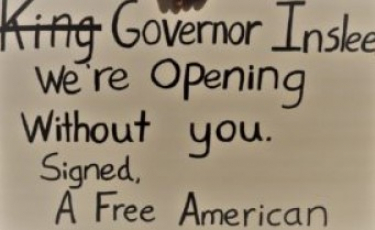 King Governor Inslee
We're Opening
Without you.
Signed,
A Free American